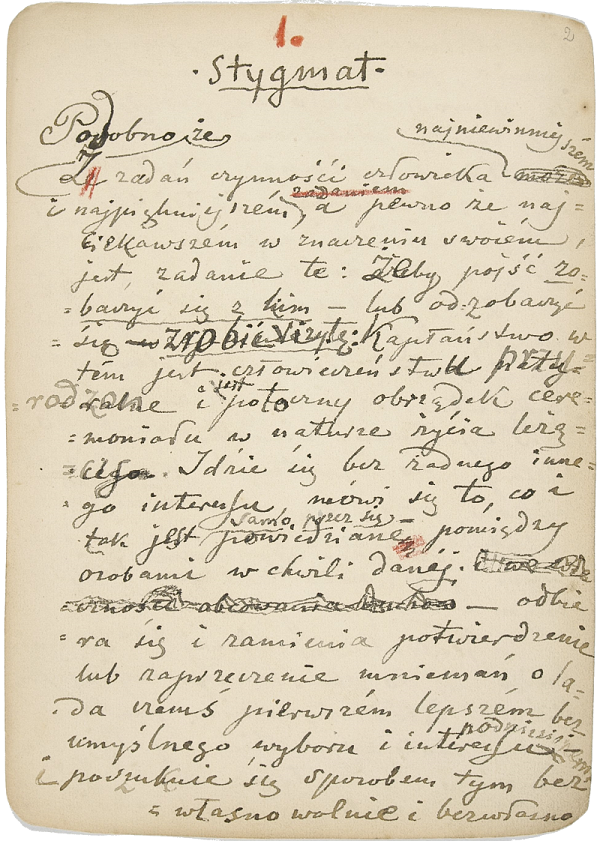 1.
2
·Stygmat·
Podobno że
najniewinniejszém
Z zadań czynności człowieka
zadaniem
i najpiękniejszém, a pewno że naj=
ciekawszém w znaczeniu swoiém,
jest zadanie te: Żeby pójść zo=
=baczyć się z kim — lub od-zobaczyć
= się — zrobić wizytę. Kapłaństwo w
tém jest człowieczeństwu przy=
=rodzone
i jest potoczny obrządek cere=
=moniału w naturze życia leżą=
=cego. Idzie się bez żadnego inne=
go interesu, mówi się to, co i
samo, przez się
tak jest powiedziane, pomiędzy
osobami w chwili danéj.
— odbie
=ra się i zamienia potwierdzenie
lub zaprzeczenie mniemań o la=
da czemś pierwszém lepszém bez
umyślnego wyboru i interesu
i poszukuje się sposobem tym bez
= własnowolnie i bezwłasno